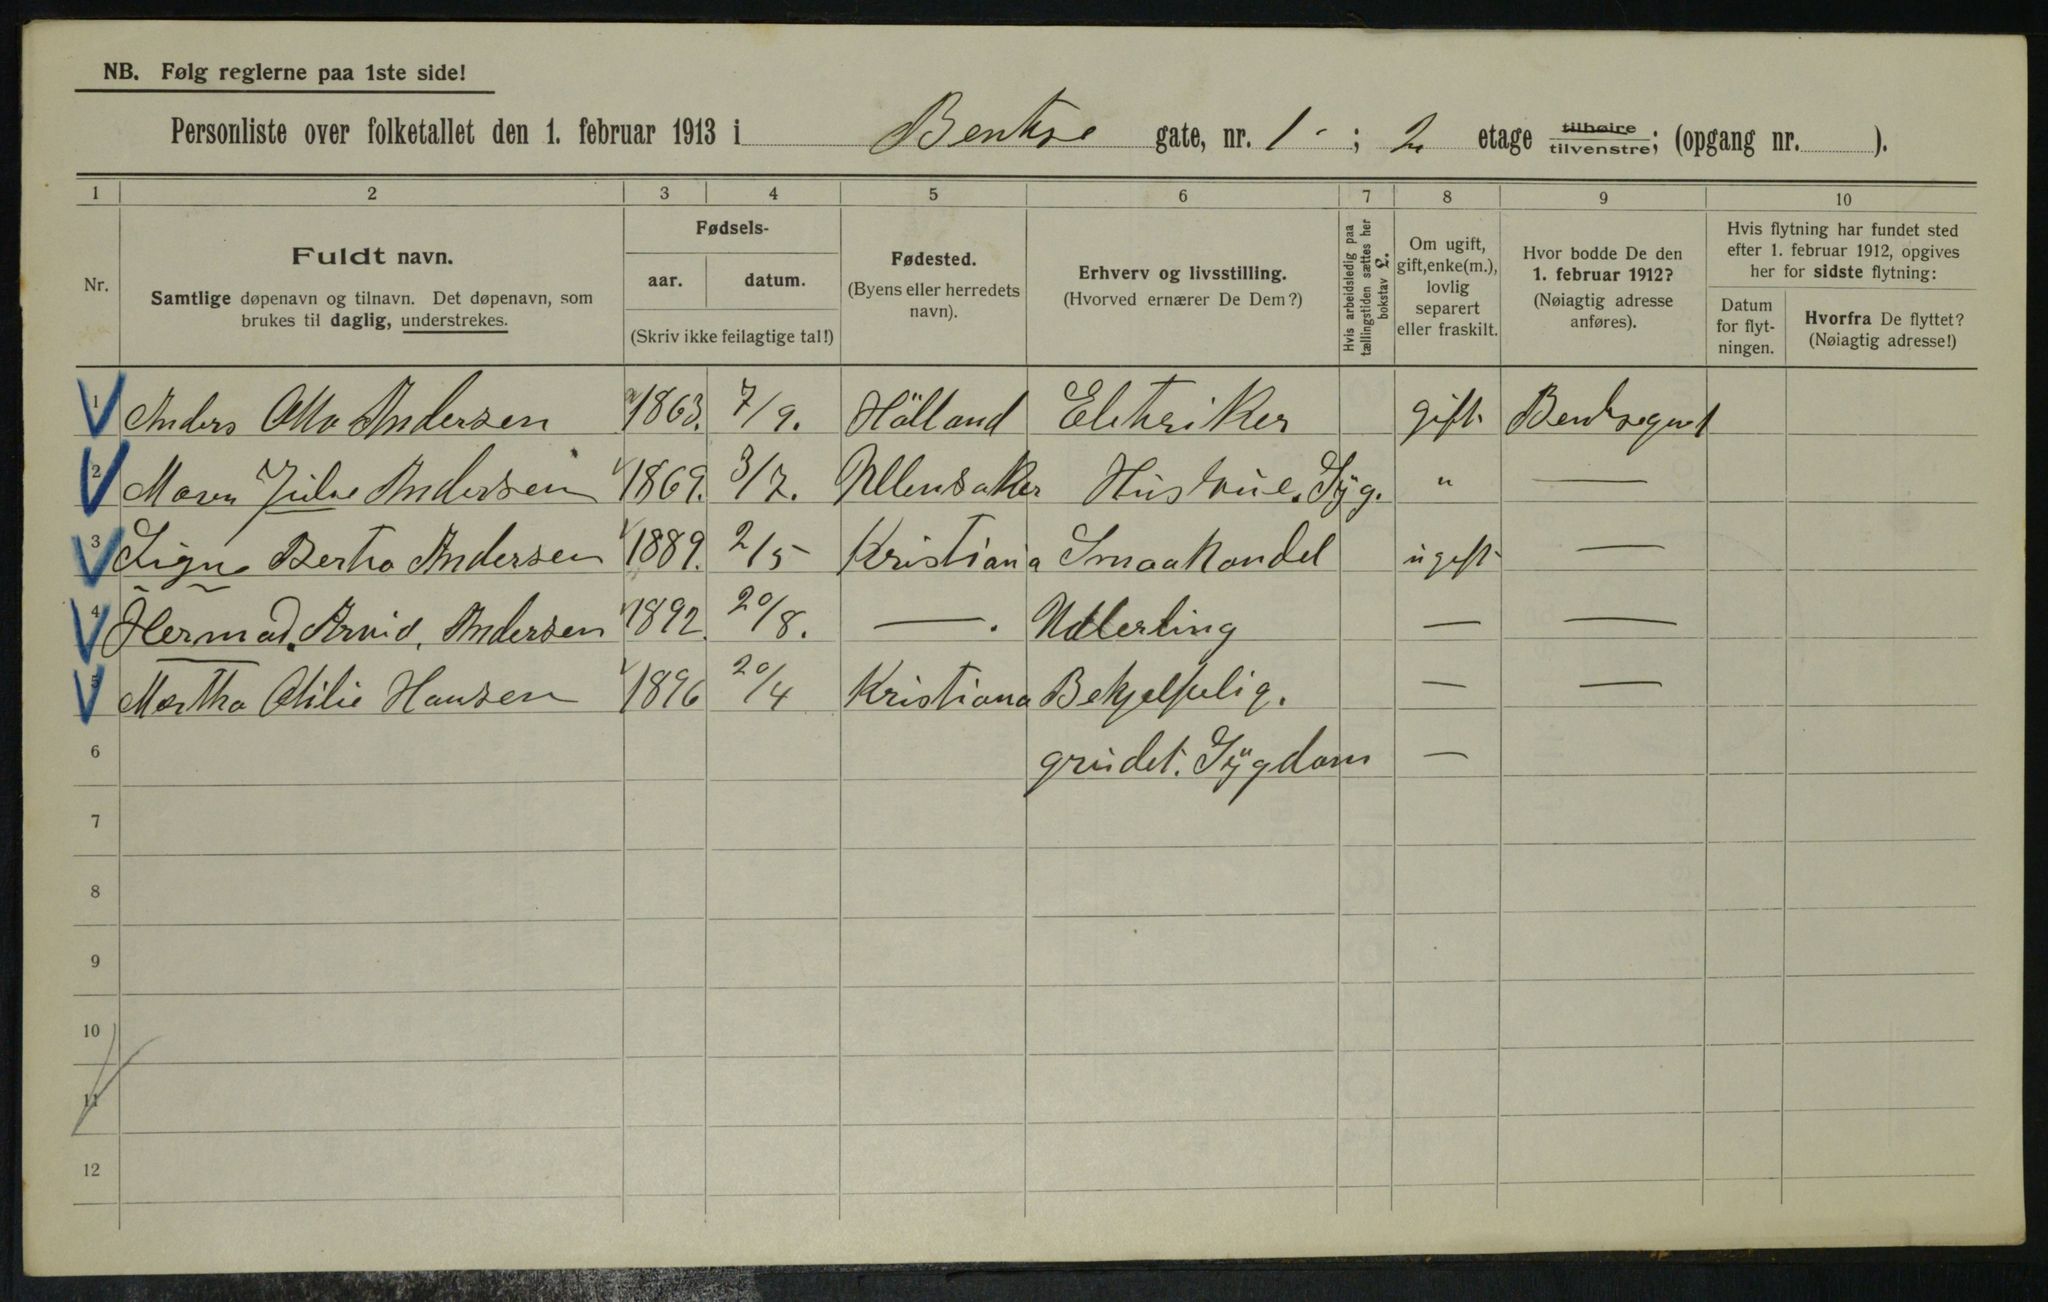 NB. Følg reglerne paa 1ste side!
Personliste over folketallet den 1. februar 1913 i Bentse gate, nr. 1 - ; 2 etage tilhøire tilvenstre; (opgang nr. ).
1 2 3 4 5 6 7 8 9 10
Nr.
Fuldt navn.
Samtlige døpenavn og tilnavn. Det døpenavn, som
brukes til daglig, understrekes.
Fødsels-
aar. datum.
(Skriv ikke feilagtige tal!)
Fødested.
(Byens eller herredets
navn).
Erhverv og livsstilling.
(Hvorved ernærer De Dem?)
Hvis arbeidsledig paa
tællingstiden sættes her
bokstav £.
Om ugift,
gift, enke(m.),
lovlig
separert
eller fraskilt.
Hvor bodde De den
1. februar 1912?
(Nøiagtig adresse
anføres).
Hvis flytning har fundet sted
efter 1. februar 1912, opgives
her for sidste flytning:
Datum
for flyt-
ningen.
Hvorfra De flyttet?
(Nøiagtig adresse!)
1 Anders Otto Andersen 1863. 7/9. Hölland Elektriker gift Bentsegat 1
2 Maren Julie Andersen 1869. 3/7. Ullensaker Hustrue. Syg. " —
3 Signe Berta Andersen 1889. 2/5 Kristiania Smaahandel ugift —
4 Herman. Arvid. Andersen 1892. 20/8. — . Utlerling — —
5 Martha Otilie Hansen 1896 20/4 Kristiana Behjelpelig. — —
6 grudet. Sygdom —
7
8
9
10
11
12